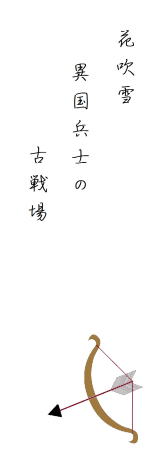 花吹雪
異国兵士の
古戦場